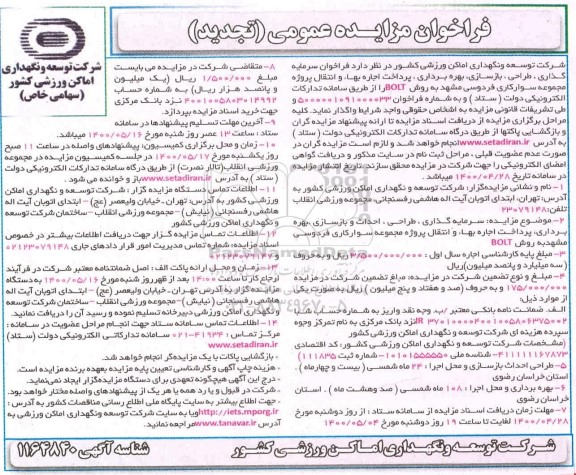 فراخوان مزایده عمومی (تجدید)
شرکت توسعه و نگهداری
اماکن ورزشی کشور
(سهامی خاص)
شرکت توسعه ونگهداری اماکن ورزشی کشور در نظر دارد فراخوان سرمایه
گذاری ، طراحی ، بازسازی، بهره برداری ، پرداخت اجاره بها، و انتقال پروژه
مجموعه سوارکاری فردوسی مشهد به روش BOLT را از طریق سامانه تدارکات
الکترونیکی دولت ( ستاد ) و به شماره فراخوان
طی تشریفات قانونی مزایده به اشخاص حقوقی واجد شرایط واگذار نماید. کلیه
مراحل برگزاری مزایده از دریافت اسناد مزایده تا ارائه پیشنهاد مزایده گران
و بازگشایی پاکتها از طریق درگاه سامانه تدارکات الکترونیکی دولت ( ستاد )
به آدرس www.setadiran.ir انجام خواهد شد و لازم است مزایده گران در
صورت عدم عضویت قبلی ، مراحل ثبت نام در سایت مذکور و دریافت گواهی
امضای الکترونیکی را جهت شرکت در مزایده محقق سازند.تاریخ انتشار مزایده
در سامانه تاریخ ۱۴۰۰/۰۴/۲۸ میباشد.
۱- نام و نشانی مزایده‌گزار: شرکت توسعه و نگهداری اماکن ورزشی کشور به
آدرس: تهران، ابتدای اتوبان آیت اله هاشمی رفسنجانی، مجموعه ورزشی انقلاب
۲- موضوع مزایده: سرمایه گذاری ، طراحی ، احداث و بازسازی، بهره
برداری، پرداخت اجاره بها، و انتقال پروژه مجموعه سوارکاری فردوسی
مشهدبه روش BOLT
۳- مبلغ پایه کارشناسی اجاره سال اول : ۳/۵۰۰/۰۰۰/۰۰۰ ریال و به حروف
(سه میلیارد و پانصد میلیون) ریال
۴- مبلغ و نوع تضمین شرکت در مزایده: مبلغ تضمین شرکت در مزایده
۱۷۵/۰۰۰/۰۰۰ و به حروف (صد و هفتاد و پنج میلیون ) ریال به صورت یکی
از موارد ذیل:
الف. ضمانت نامه بانکی معتبر /ب. وجه نقد واریز به شماره حساب شبا
نزد بانک مرکزی به نام تمرکز وجوه
سپرده هزینه ای شرکت توسعه و نگهداری اماکن ورزشی کشور
(مشخصات شرکت توسعه و نگهداری اماکن ورزشی کشور: کد اقتصادی
۴۱۱۱۱۱۱۶۷۸۷۳- شناسه ملی ۱۰۱۰۱۵۵۵۵۵۰ - شماره ثبت ۱۱۱۸۳۵)
۵- طراحی احداث بازسازی و محل اجرا : ۲۴ ماه شمسی ( بیست و چهارماه ) .
استان خراسان رضوی
۶- بهره برداری و محل اجرا : ۱۰۸ ماه شمسی ( صد وهشت ماه ) . استان
خراسان رضوی
۷- مهلت زمان دریافت اسناد مزایده از سامانه ستاد : از روز دوشنبه مورخ
۱۴۰۰/۰۴/۲۸ لغایت تا ساعت ۱۹ روز دوشنبه مورخ ۱۴۰۰/۰۵/۰۴
۸- متقاضی شرکت در مزایده می بایست
مبلغ ۱/۵۰۰/۰۰۰ ریال (یک میلیون
و پانصد هزار ریال) به شماره حساب
نزد بانک مرکزی
جهت خرید اسناد مزایده بپردازد.
۹- آخرین مهلت تسلیم پیشنهادها در سامانه
ستاد : ساعت ۱۳ عصر روز شنبه مورخ ۱۴۰۰/۰۵/۱۶ میباشد.
۱۰- زمان و محل برگزاری کمیسیون: پیشنهادهای واصله در ساعت ۱۱ صبح
روز یکشنبه مورخ ۱۴۰۰/۰۵/۱۷ در جلسه کمیسیون مزایده در مجموعه
ورزشی انقلاب(تالار نصرت) از طریق درگاه سامانه تدارکات الکترونیکی دولت
( ستاد ) به آدرس www.setadiran.ir باز و خوانده می شود .
۱۱- اطلاعات تماس دستگاه مزایده گزار : شرکت توسعه و نگهداری اماکن
ورزشی کشور به آدرس: تهران_خیابان ولیعصر (عج) - ابتدای اتوبان آیت اله
هاشمی رفسنجانی (نیایش) - مجموعه ورزشی انقلاب - ساختمان شرکت توسعه
و نگهداری اماکن ورزشی کشور
۱۲- اطلاعات تماس مزایده گزار جهت دریافت اطلاعات بیشتر در خصوص
اسناد مزایده: شماره تماس مدیریت امور قرار دادهای جاری ۰۲۱۲۳۰۷۹۱۴۸
۱۳- زمان و محل ارائه پاکت الف : اصل ضمانتنامه معتبر شرکت در فرآیند
ارجاع کار تا ساعت ۱۴:۰۰ بعد از ظهر روز شنبه مورخ ۱۴۰۰/۰۵/۱۶ به دستگاه
مزایده گزار به آدرس تهران_خیابان ولیعصر (عج) - ابتدای اتوبان آیت اله
هاشمی رفسنجانی (نیایش) - مجموعه ورزشی انقلاب - ساختمان شرکت توسعه
و نگهداری اماکن ورزشی دبیرخانه تسلیم نموده و رسید آن را دریافت نمایند.
۱۴- اطلاعات تماس سامانه ستاد جهت انجام مراحل عضویت در سامانه :
مرکز تماس : ۴۱۹۳۴-۰۲۱ سامانه تدارکاتی الکترونیکی دولت (ستاد)
www.setadiran.ir
- بازگشایی پاکات با یک مزایده‌گر انجام خواهد شد.
- هزینه چاپ آگهی و کارشناسی تعیین پایه مزایده بعهده برنده مزایده است.
- درج این آگهی هیچگونه تعهدی برای دستگاه مزایده‌گزار ایجاد نمی‌نماید.
- شرکت در قبول و یا رد همه یا هر یک از پیشنهادهای واصله مختار خواهد بود.
- جهت اطلاع بیشتر به سایت پایگاه ملی اطلاع رسانی مناقصات کشور به آدرس :
http://iets.mporg.ir و یا به سایت شرکت توسعه و نگهداری اماکن ورزشی به
آدرس www.tanavar.ir مراجعه نمایید.
شرکت توسعه ونگهداری اماکن ورزشی کشور
شناسه آگهی ۱۱۶۴۸۴۰